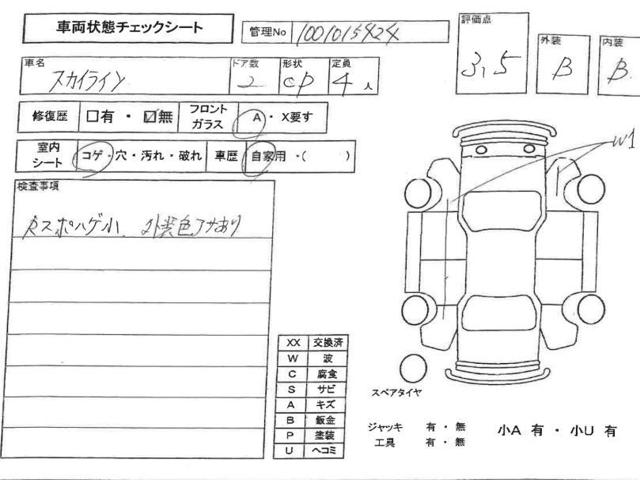 車両状態チェックシート
管理No 1001015424
評価点 3.5
外装 B
内装 B
車名 スカイライン
ドア数 2
形状 CP
定員 4 人
修復歴 □有・☑無
フロントガラス A・X要す
室内シート コゲ・穴・汚れ・破れ
車歴 自家用・( )
検査事項
Rスポハゲ小、外装色アサあり
W1
XX 交換済
W 波
C 腐食
S サビ
A キズ
B 鈑金
P 塗装
U ヘコミ
スペアタイヤ
ジャッキ 有・無
工具 有・無
小A 有・小U 有